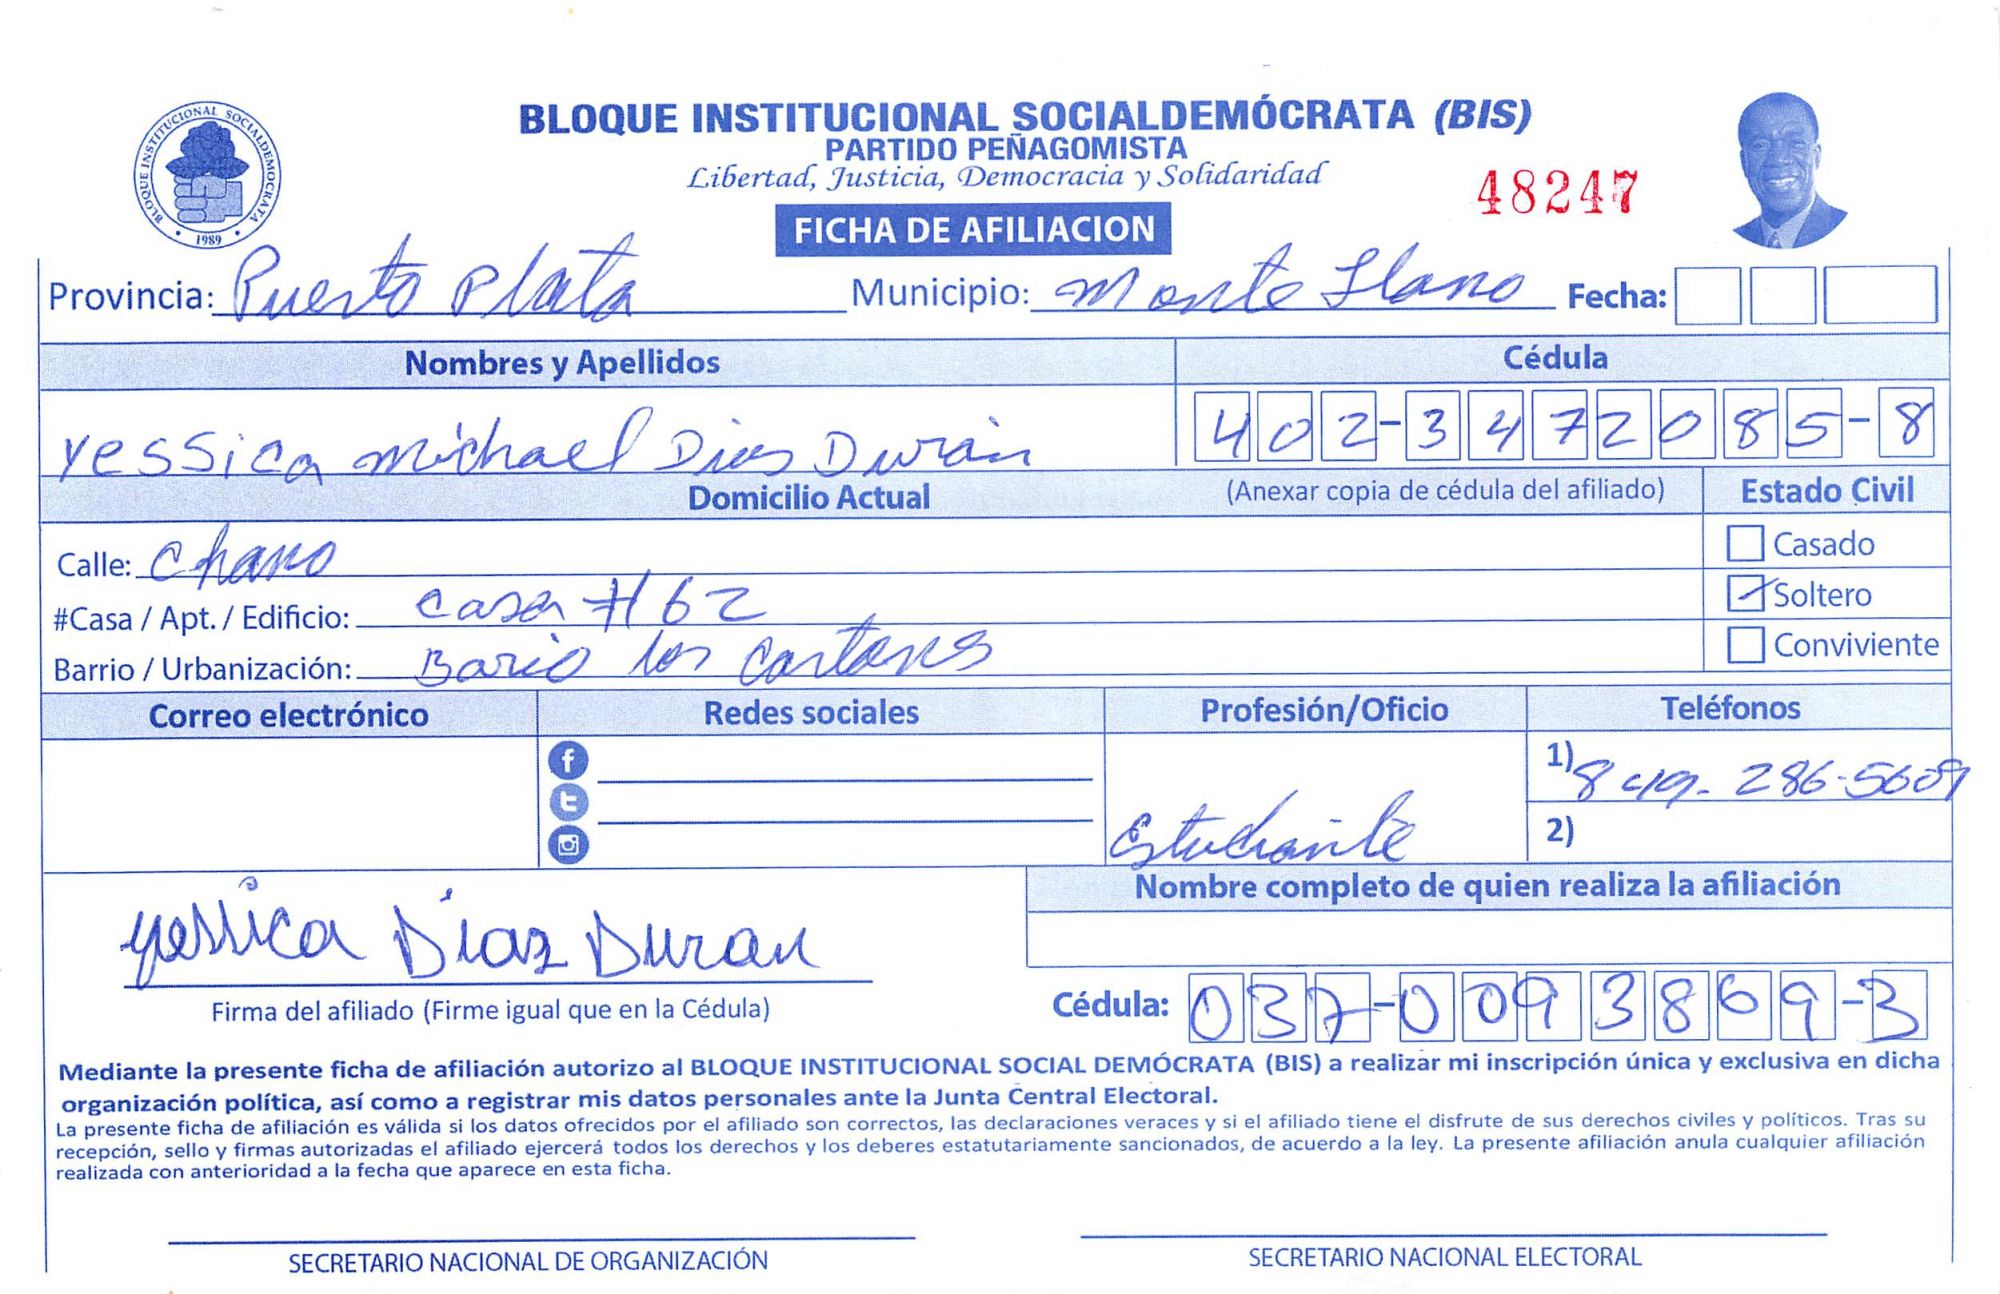 BLOQUE INSTITUCIONAL SOCIALDEMÓCRATA (BIS)
PARTIDO PEÑAGOMISTA
Libertad, Justicia, Democracia y Solidaridad
48247
BLOQUE INSTITUCIONAL SOCIALDEMOCRATA
1989
FICHA DE AFILIACION
Provincia: Puerto Plata Municipio: Monte Llano Fecha:
Nombres y Apellidos Cédula
Yessica Michael Dias Durán 402-3472085-8
Domicilio Actual (Anexar copia de cédula del afiliado) Estado Civil
Calle: Chano Casado
#Casa / Apt. / Edificio: casa #62 Soltero
Barrio / Urbanización: Bario los Conviviente
Correo electrónico Redes sociales Profesión/Oficio Teléfonos
1) 849-286-5609
Estudiante 2)
Nombre completo de quien realiza la afiliación
yessica Díaz Duran
Firma del afiliado (Firme igual que en la Cédula) Cédula: 037-0093869-3
Mediante la presente ficha de afiliación autorizo al BLOQUE INSTITUCIONAL SOCIAL DEMÓCRATA (BIS) a realizar mi inscripción única y exclusiva en dicha
organización política, así como a registrar mis datos personales ante la Junta Central Electoral.
La presente ficha de afiliación es válida si los datos ofrecidos por el afiliado son correctos, las declaraciones veraces y si el afiliado tiene el disfrute de sus derechos civiles y políticos. Tras su
recepción, sello y firmas autorizadas el afiliado ejercerá todos los derechos y los deberes estatutariamente sancionados, de acuerdo a la ley. La presente afiliación anula cualquier afiliación
realizada con anterioridad a la fecha que aparece en esta ficha.
SECRETARIO NACIONAL DE ORGANIZACIÓN SECRETARIO NACIONAL ELECTORAL